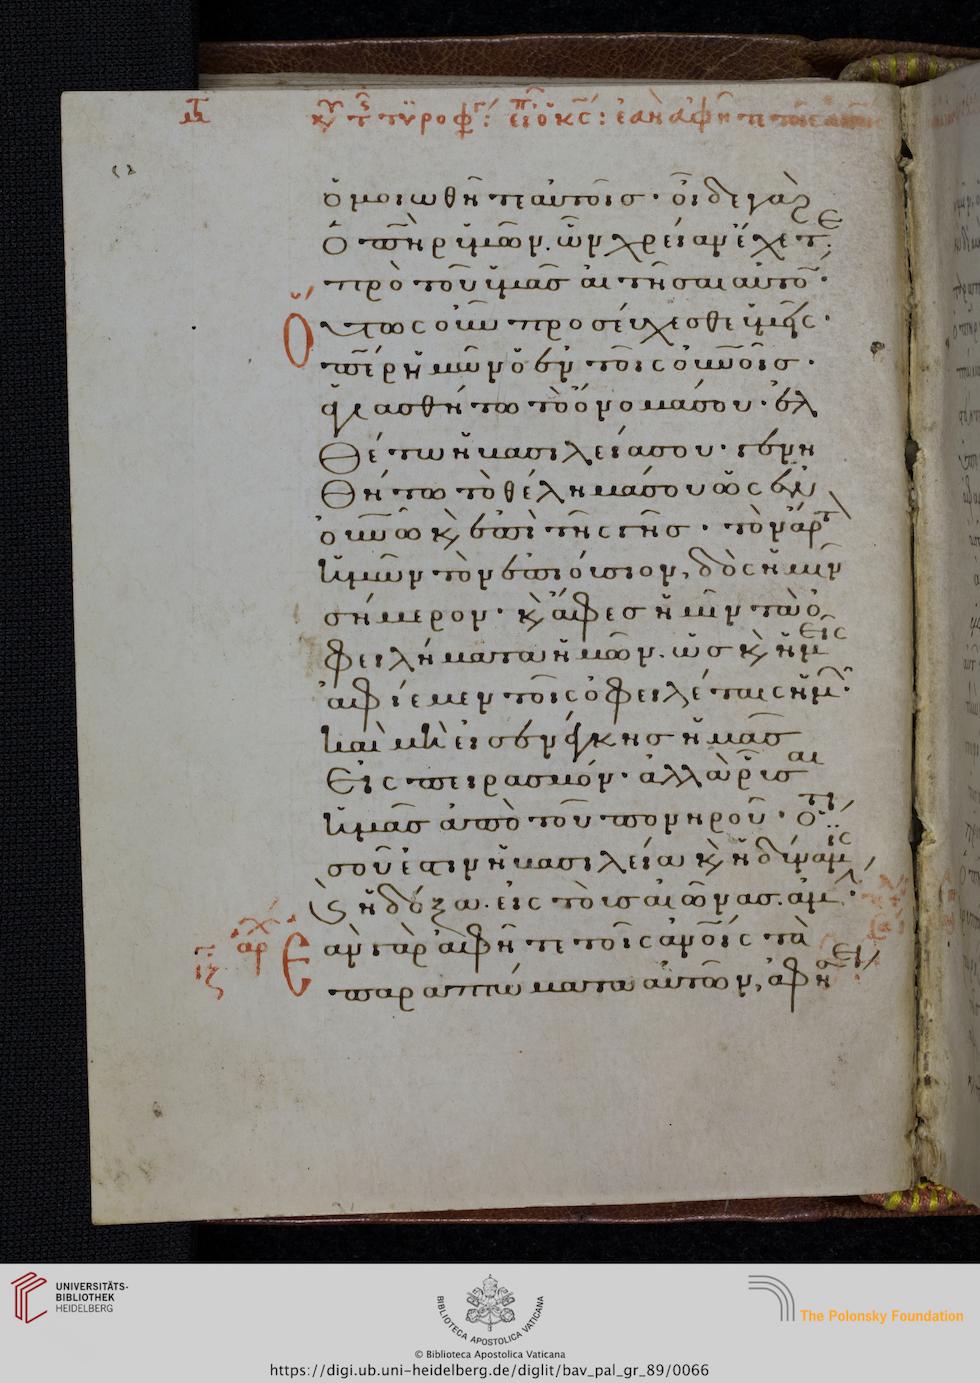 ὁμοιωθῆτε αὐτοῖς· οἶδε γὰρ
ὁ πηρ ὑμῶν. ὧν χρείαν ἔχετε
πρὸ τοῦ ὑμᾶς αἰτῆσαι αὐτόν·
Οὕτως οὖν προσεύχεσθε ὑμεῖς·
περ ἡμῶν ὁ ἐν τοῖς οὐνοῖς·
ἁγιασθήτω τὸ ὄνομά σου· ἐλ
θέτω ἡ βασιλεία σου· γενη
θήτω τὸ θέλημά σου ὡς ἐν
οὐνῶ κ ἐπὶ τῆς γῆς· τὸν ἄρτ
ἡμῶν τὸν ἐπιούσιον, δὸς ἡμῖν
σήμερον· κ ἄφες ἡμῖν τὰ ὀ
φειλήματα ἡμῶν. ὡς κ ἡμεῖς
ἀφίεμεν τοῖς ὀφειλέταις ἡμ·
καὶ μὴ εἰσενέγκης ἡμᾶς
εἰς πειρασμόν· ἀλλὰ ῥῦσαι
ἡμᾶς ἀπὸ τοῦ πονηροῦ· ὅτι
σοῦ ἐστιν ἡ βασιλεία κ ἡ δύναμις
κ ἡ δόξα. εἰς τοὺς αἰῶνας. ἀμ·
Ἐὰν γὰρ ἀφῆτε τοῖς ἀνοις τὰ
παραπτώματα αὐτῶν, ἀφή
UNIVERSITÄTS-
BIBLIOTHEK
HEIDELBERG
BIBLIOTECA APOSTOLICA VATICANA
The Polonsky Foundation
© Biblioteca Apostolica Vaticana
https://digi.ub.uni-heidelberg.de/diglit/bav_pal_gr_89/0066